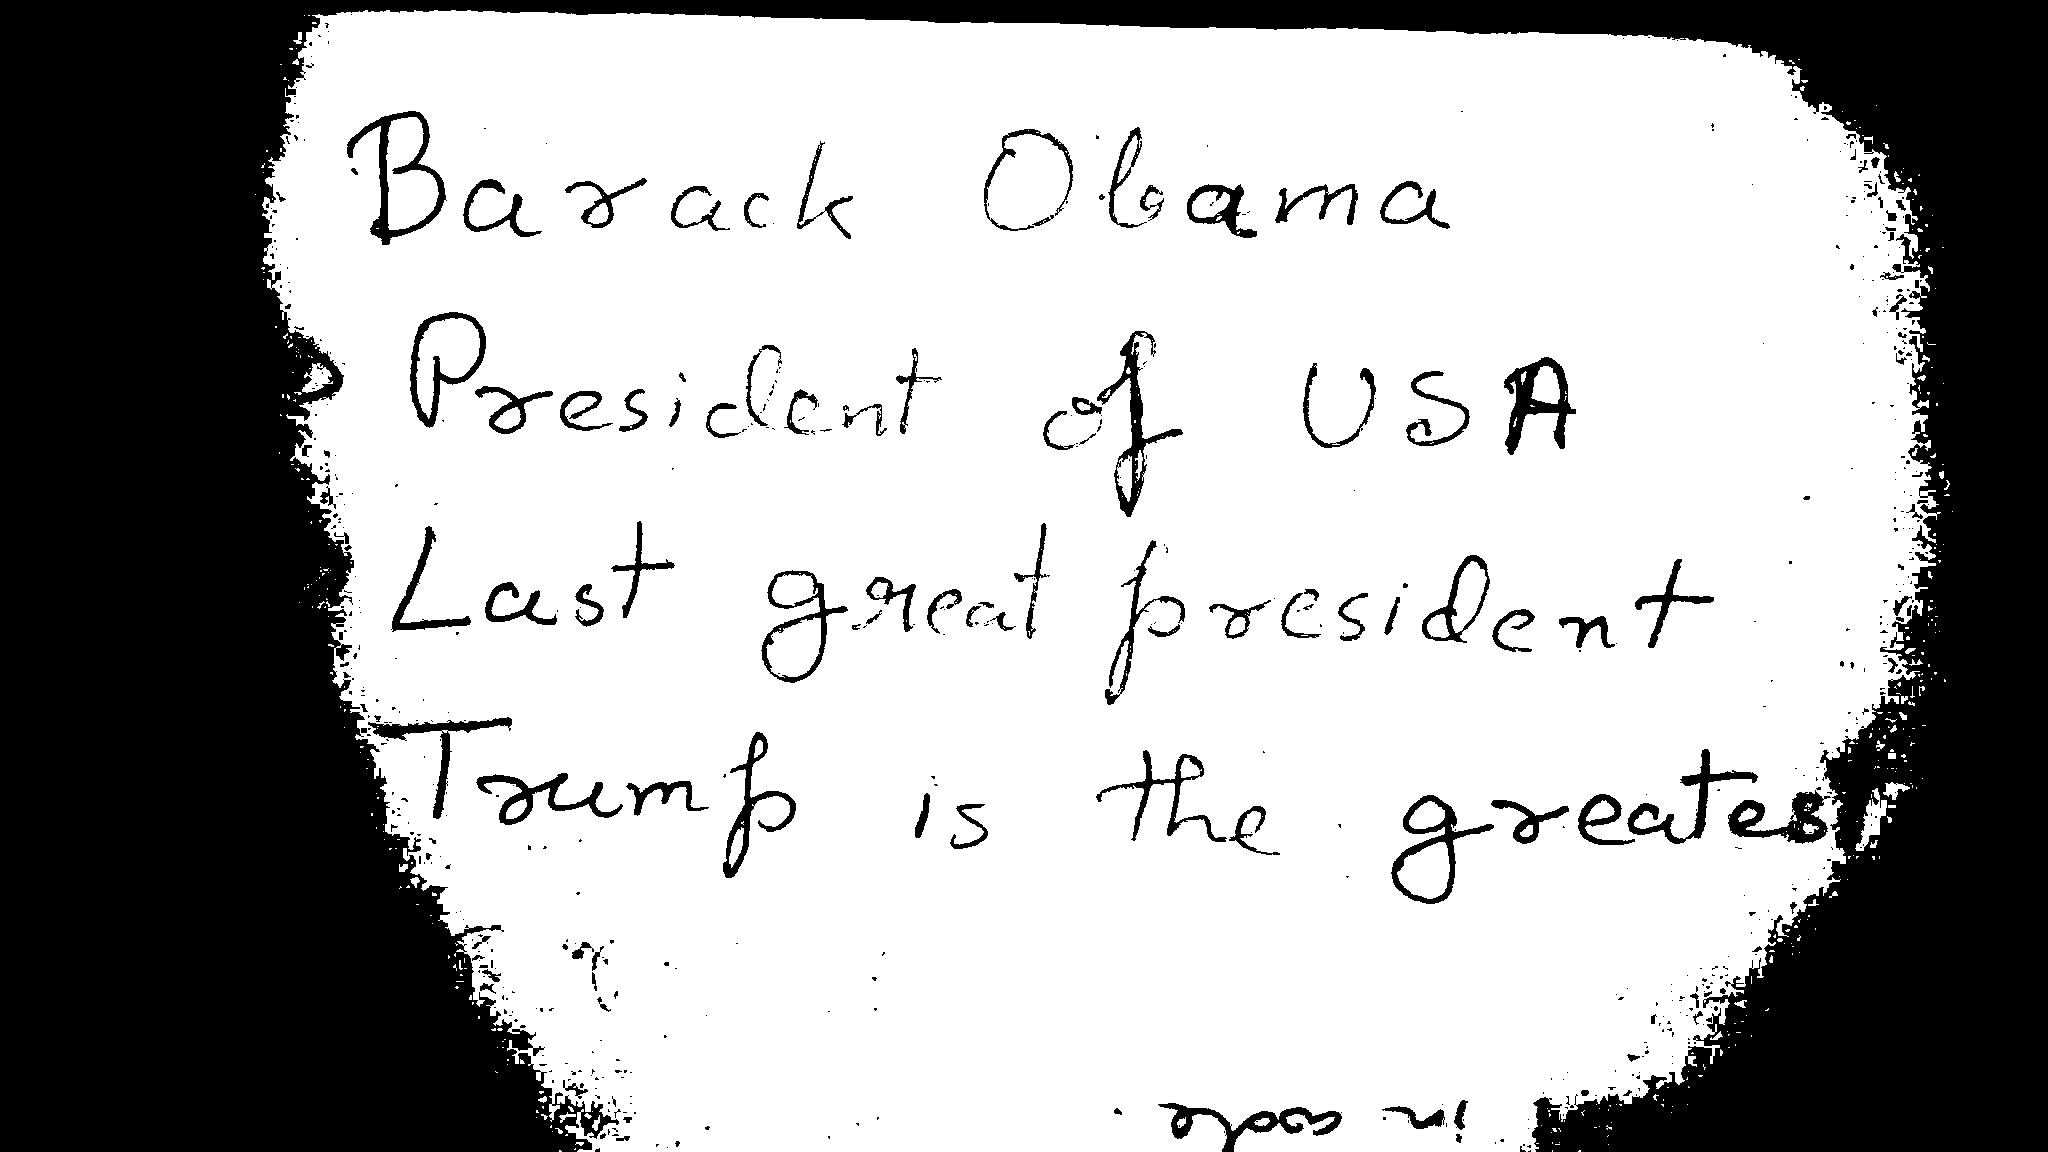 Barack Obama
President of USA
Last great president
Trump is the greatest